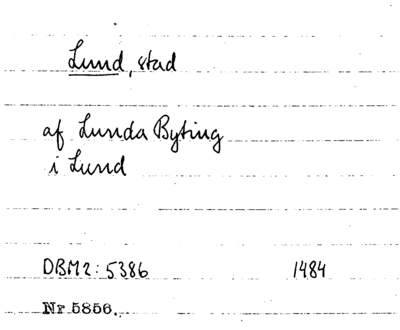 Lund, stad
af Lunda Byting
i Lund
DBM2: 5386 1484
Nr 5856.